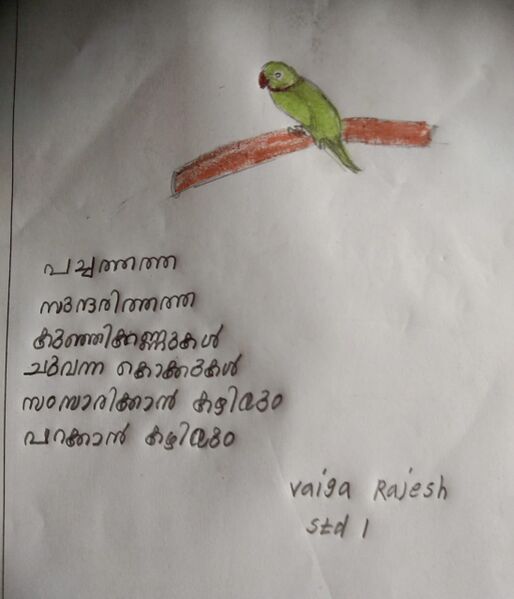 പച്ചത്തത്ത
സുന്ദരിത്തത്ത
കുഞ്ഞിക്കണ്ണുകൾ
ചുവന്ന കൊക്കുകൾ
സംസാരിക്കാൻ കഴിവും
പറക്കാൻ കഴിവും
Vaiga Rajesh
Std 1